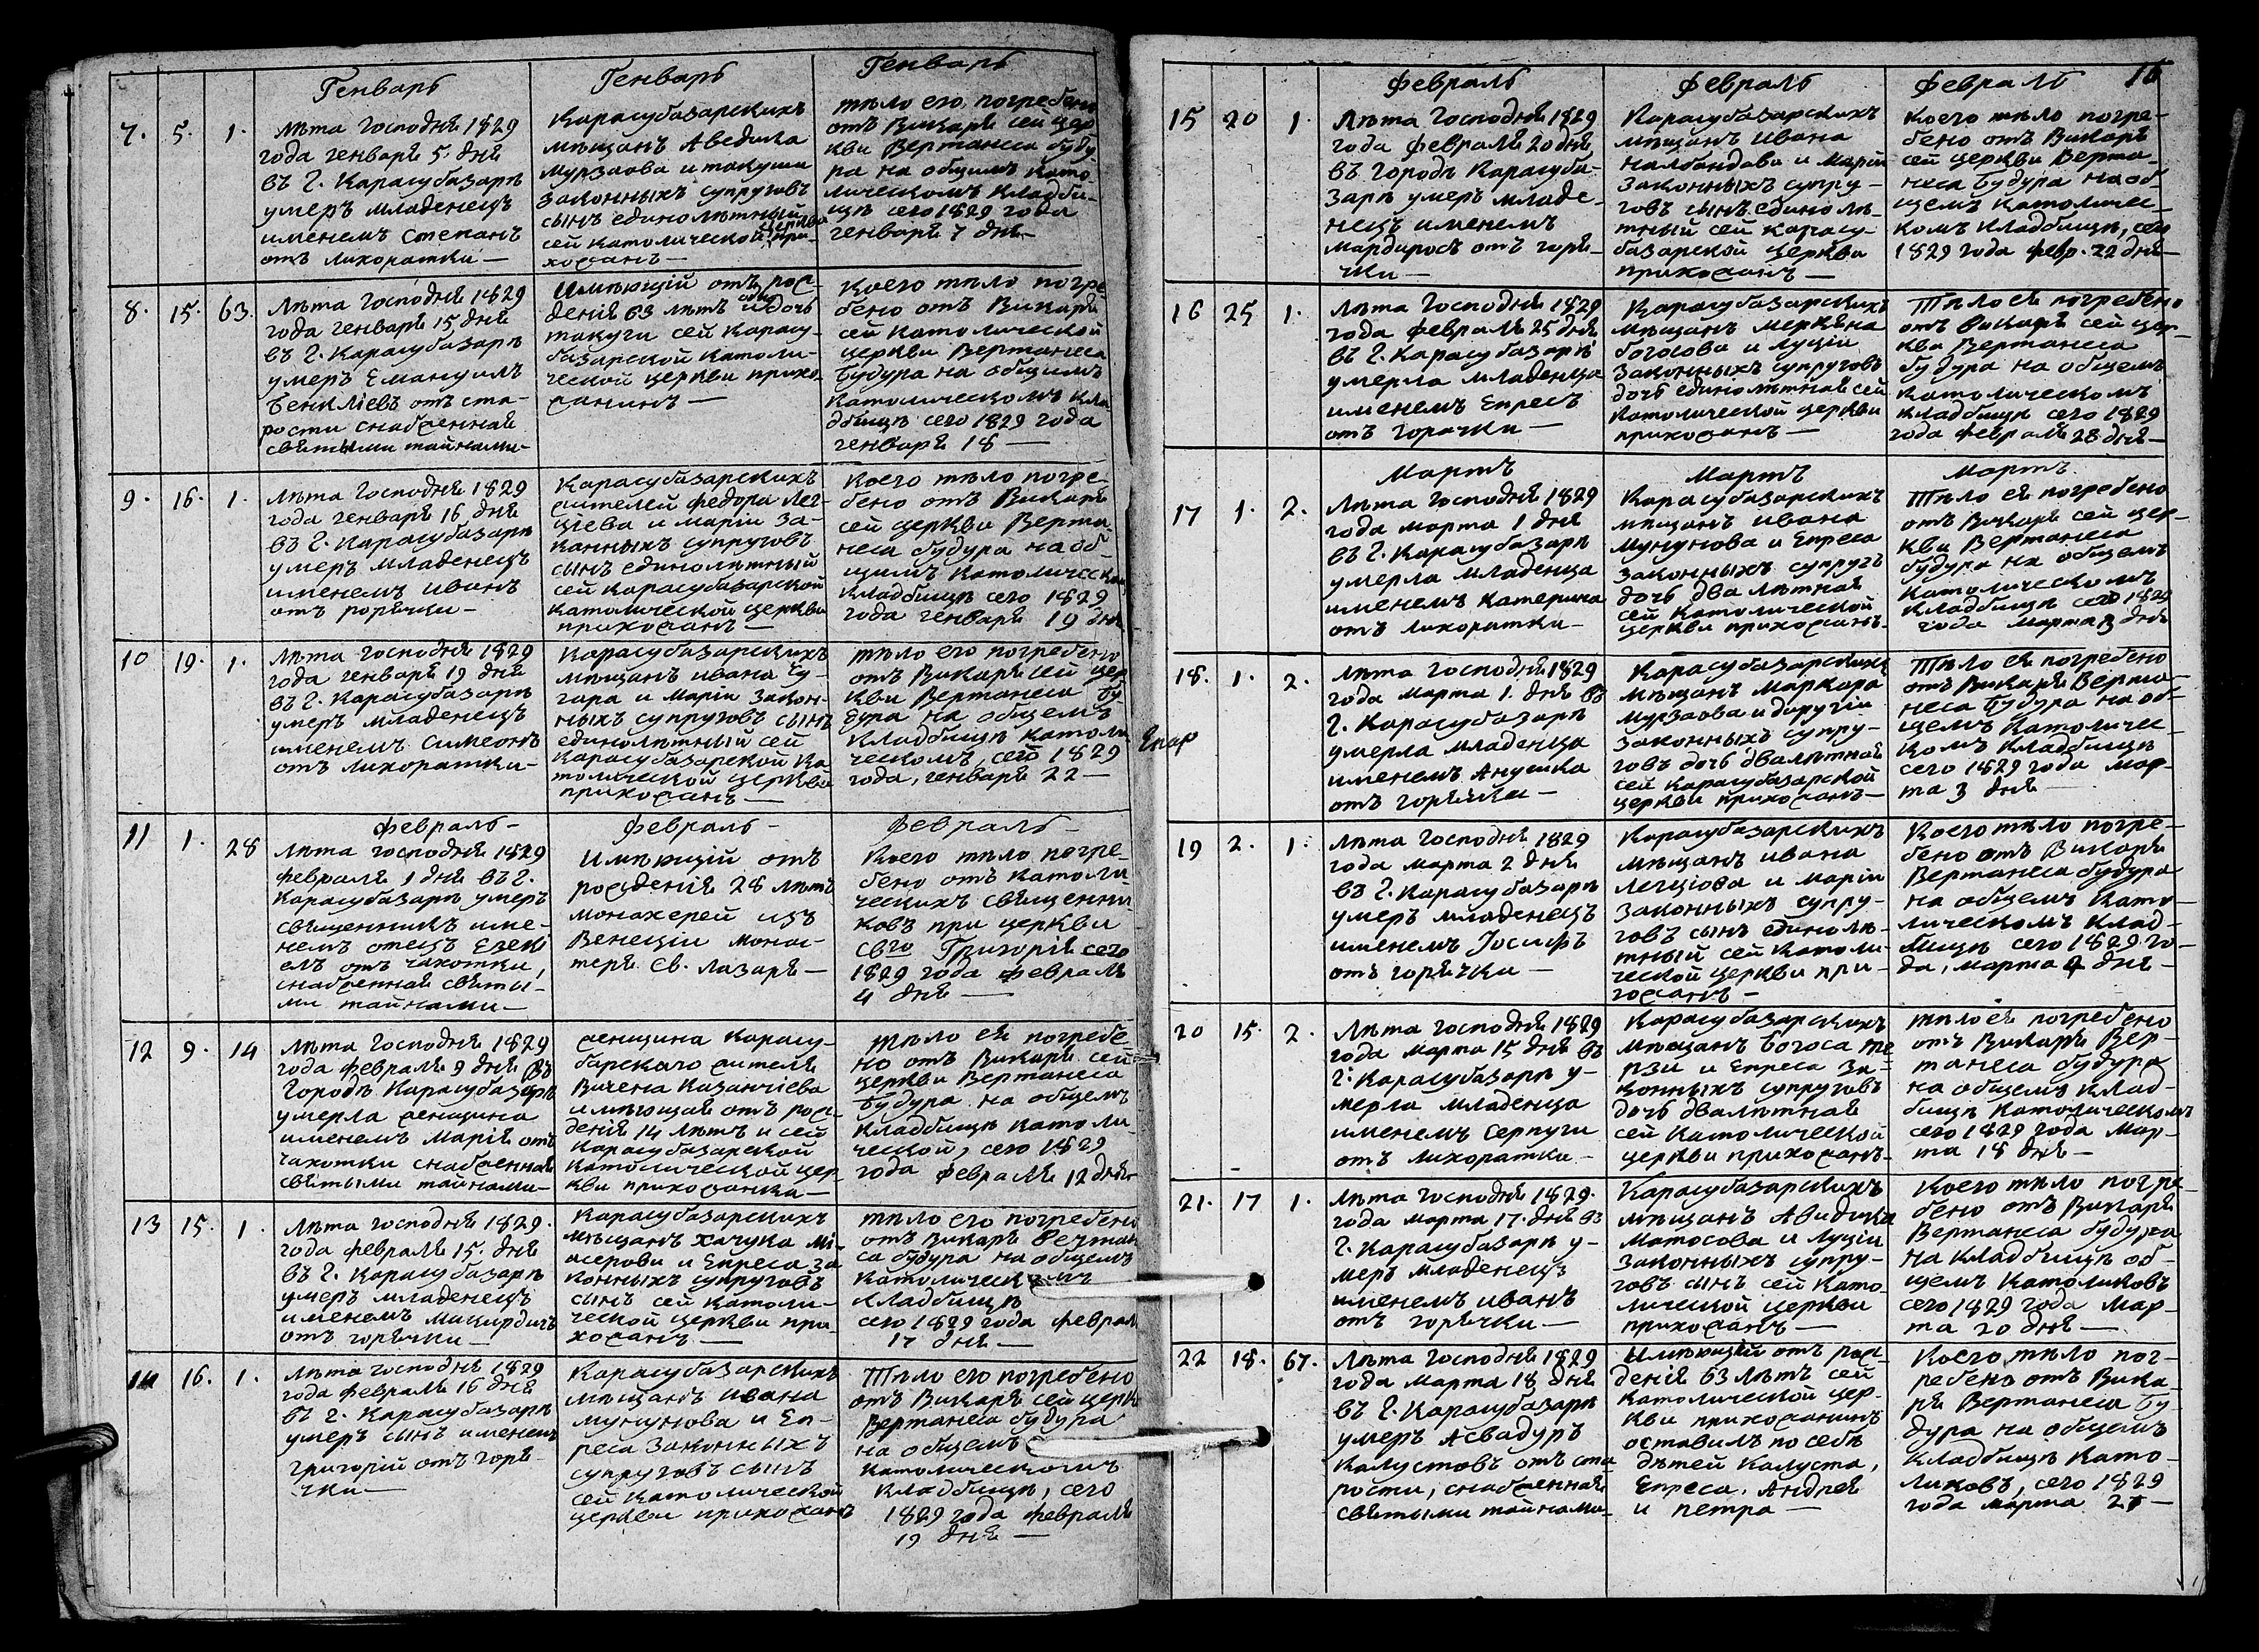 Генварь
7. 5. 1.
Лѣта Господня 1829
года генваря 5. дня
въ г. Карасубазарѣ
умеръ младенецъ
именемъ Степанъ
отъ лихоратки —
Генварь
Карасубазарскихъ
мѣщанъ Аведика
Мурзаова и такуша
законныхъ супруговъ
сынъ единолѣтный
церкви
сей католической при-
хожанъ —
Генварь
тѣло его погребено
отъ Викаря сей цер
кви Вертанеса буду
ра на общимъ като
лическомъ кладби-
щѣ сего 1829 года
генваря 7 дня —
8. 15. 63.
Лѣта Господня 1829
года генваря 15 дня
въ г. Карасубазарѣ
умеръ Емануилъ
Бенклiевъ отъ ста-
рости снабженная
святыми тайнами —
Имѣющiй отъ рож-
денiя 63 лѣтъ дочь
такуги сей Карасу-
базарской католи-
ческой церкви прихо-
жанинъ —
Коего тѣло погре
бено отъ Викаря
сей католической
церкви Вертанеса
Будура на общимъ
католическомъ кла
дбищѣ сего 1829 года
генваря 18 —
9. 16. 1.
Лѣта Господня 1829
года генваря 16 дня
въ г. Карасубазарѣ
умеръ младенецъ
именемъ Иванъ
отъ горячки —
Карасубазарскихъ
жителей Федора Лег-
цiева и Марiи за-
конныхъ супруговъ
сынъ единолѣтный
сей Карасубазарской
католической церкви
прихожанъ —
Коего тѣло погре-
бено отъ Викаря
сей церкви Верта
неса будура на об-
щимъ католическомъ
кладбищѣ сего 1829
года генваря 19 дня
10 19. 1.
Лѣта Господня 1829
года генваря 19 дня
въ г. Карасубазарѣ
умеръ младенецъ
именемъ Симеонъ
отъ лихоратки —
Карасубазарскихъ
мѣщанъ Ивана Чу-
гара и Марiи закон-
ныхъ супруговъ сынъ
единолѣтный сей
Карасубазарской ка
толической церкви
прихожанъ —
тѣло его погребено
отъ Викаря сей цер
кви Вертанеса Бу-
дура на общемъ
кладбищѣ католи
ческомъ, сего 1829
года, генваря 22 —
11 1. 28
Февраль —
Лѣта Господня 1829
февраля 1 дня въ г.
Карасубазарѣ умеръ
священникъ име-
немъ отецъ Езекi
елъ отъ чахотки,
снабженная святы-
ми тайнами —
Февраль —
Имѣющiй отъ
рожденiя 28 лѣтъ
монахерей изъ
Венецiи монас-
теря Св. Лазаря —
Февраль —
Коего тѣло погре-
бено отъ католи-
ческихъ священни-
ковъ при церкви
свго Григорiя сего
1829 года февраля
4 дня —
12 9. 14
Лѣта Господня 1829
года февраля 9 дня въ
Городѣ Карасубазарѣ
умерла женщина
именемъ Марiя отъ
чахотки снабженная
святыми тайнами —
женщина Карасу-
барскаго жителя
Вичена Казанчiева
имѣющая отъ рож-
денiя 14 лѣтъ и сей
Карасубазарской
католической цер
кви прихожанка —
тѣло ея погребе-
но отъ Викаря сей
церкви Вертанеса
Будура на общемъ
кладбищѣ католи-
ческой, сего 1829
года февраля 12 дня
13 15. 1.
Лѣта Господня 1829.
года февраля 15. дня
въ г. Карасубазарѣ
умеръ младенецъ
именемъ Макирдичъ
отъ горячки —
Карасубазарскихъ
мѣщанъ Хачука Мi-
асерови и Епреса за
конныхъ супруговъ
сынъ сей католи-
ческой церкви при-
хожанъ —
тѣло его погребено
отъ Викаря Вертан
са будура на общемъ
католическомъ
кладбищѣ
сего 1829 года февраля
17 дня —
14 16. 1.
Лѣта Господня 1829
года февраля 16 дня
въ г. Карасубазарѣ
умеръ сынъ именемъ
Григорiй отъ горя-
чки —
Карасубазарскихъ
мѣщанъ Ивана
Мунунова и Еп-
реса законныхъ
супруговъ сынъ
сей католической
церкви прихожанъ
Тѣло его погребено
отъ Викаря сей церк
Вертанеса будура
на общемъ
католическомъ
кладбищѣ, сего
1829 года февраля
19 дня —
16
15 20 1.
Февраль
Лѣта Господня 1829
года февраля 20 дня
въ городѣ Карасуба-
зарѣ умеръ младе-
нецъ именемъ
Мардиросъ отъ горя-
чки —
Февраль
Карасубазарскихъ
мѣщанъ Ивана
Налбандова и Марiи
законныхъ супру-
говъ сынъ единолѣ-
тный сей Карасу-
базарской церкви
прихожанъ —
Февраль
Коего тѣло погре-
бено отъ Викаря
сей церкви Верта-
неса Будура на об-
щемъ католичес-
комъ кладбищѣ, сего
1829 года февр. 22 дня —
16 25 1.
Лѣта Господня 1829
года февраля 25 дня
въ г. Карасубазарѣ
умерла младенца
именемъ Епресъ
отъ горячки —
Карасубазарскихъ
мѣщанъ Меркяна
Богосова и Луцiи
законныхъ супруговъ
дочь единолѣтная сей
католической церкви
прихожанъ —
Тѣло ея погребено
отъ Викаря сей цер-
кви Вертанеса
будура на общемъ
католическомъ
кладбищѣ сего 1829
года февраля 28 дня —
17 1. 2.
Мартъ
Лѣта Господня 1829
года марта 1 дня
въ г. Карасубазарѣ
умерла младенца
именемъ Катерина
отъ лихоратки —
Мартъ
Карасубазарскихъ
мѣщанъ Ивана
Мунунова и Епреса
законныхъ супругъ
дочь двалѣтная
сей католической
церкви прихожанъ —
Мартъ
Тѣло ея погребено
отъ Викаря сей цер-
кви Вертанеса
будура на общемъ
католическомъ
кладбищѣ сего 1829
года марта 3 дня
18. 1. 2.
Лѣта Господня 1829
года марта 1. дня въ
г. Карасубазарѣ
умерла младенца
именемъ Анушка
отъ горячки —
Карасубазарскихъ
мѣщанъ Маркара
Мурзаова и Даругiи
законныхъ супру-
говъ дочь двалѣтная
сей Карасубазарской
церкви прихожанъ —
Тѣло ея погребено
отъ Викаря Верта-
неса Будура на об-
щемъ католичес-
комъ кладбищѣ
сего 1829 года мар-
та 3 дня —
19 2. 1.
Лѣта Господня 1829
года марта 2 дня
въ г. Карасубазарѣ
умеръ младенецъ
именемъ Iосифъ
отъ горячки —
Карасубазарскихъ
мѣщанъ Ивана
Легцiова и Марiи
законныхъ супру-
говъ сынъ единолѣ-
тный сей католи-
ческой церкви при-
гожанъ —
Коего тѣло погре-
бено отъ Викаря
Вертанеса будура
на общемъ като-
лическомъ клад-
бищѣ сего 1829 го-
да, марта 4 дня —
20 15. 2.
Лѣта Господня 1829
года марта 15 дня въ
г. Карасубазарѣ у-
мерла младенца
именемъ Серпуги
отъ лихоратки —
Карасубазарскихъ
мѣщанъ Богоса Те-
рзи и Епреса за-
конныхъ супруговъ
дочь двалѣтная
сей католической
церкви прихожанъ —
тѣло ея погребено
отъ Викаря Вер-
танеса будура
на общемъ клад-
бищѣ католическомъ
сего 1829 года мар-
та 18 дня —
21. 17 1.
Лѣта Господня 1829.
года марта 17. дня въ
г. Карасубазарѣ у-
меръ младенецъ
именемъ Иванъ
отъ горячки —
Карасубазарскихъ
мѣщанъ Авидика
Матосова и Луцiи
законныхъ супру-
говъ сынъ сей като-
лической церкви
прихожанъ —
Коего тѣло погре-
бено отъ Викаря
Вертанеса будура
на кладбищѣ об-
щемъ католиковъ
сего 1829 года мар-
та 20 дня —
22 18. 67.
Лѣта Господня 1829
года марта 18 дня
въ г. Карасубазарѣ
умеръ Асвадуръ
Калустовъ отъ ста
рости, снабженная
святыми тайнами —
Имѣющiй отъ рож-
денiя 63 лѣтъ сей
католической цер-
кви прихожанинъ
оставилъ по себѣ
дѣтей Калуста,
Епреса, Андрея
и Петра —
Коего тѣло пог-
ребенъ отъ Вика-
ря Вертанеса Бу-
дура на общемъ
кладбищѣ като-
ликовъ, сего 1829
года марта 21 —